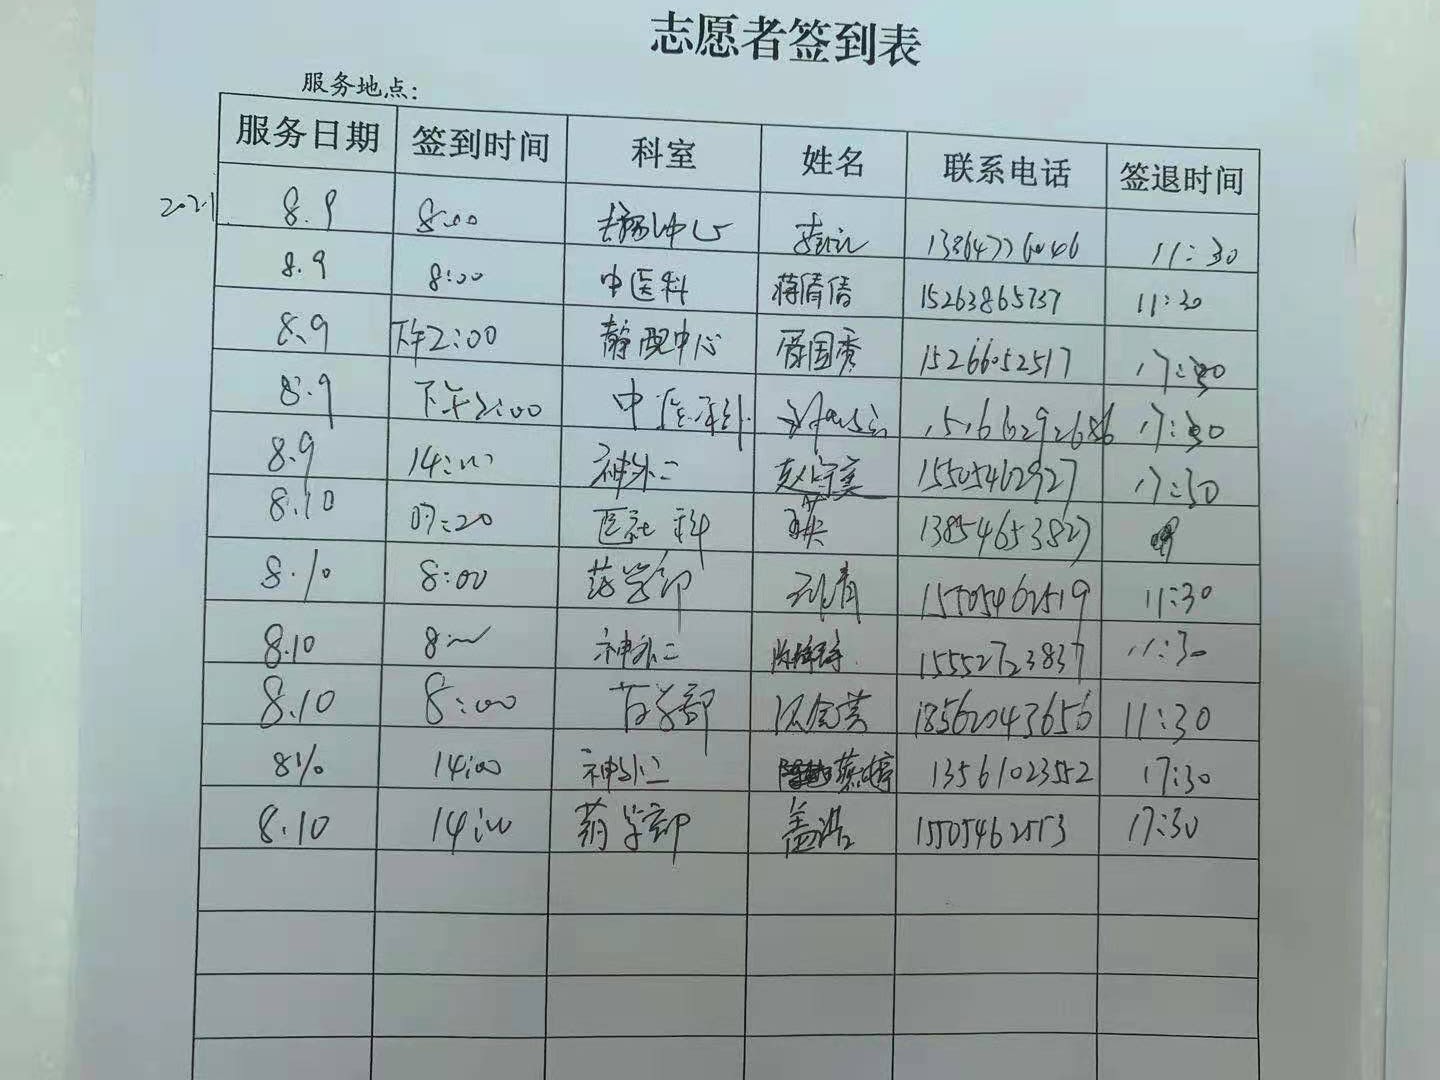 志愿者签到表
服务地点:
服务日期 签到时间 科室 姓名 联系电话 签退时间
2021 8.9 8:00 11:30
8.9 8:00 中医科 蒋倩倩 15263865737 11:30
8.9 下午2:00 静配中心 国秀 15266052517 17:30
8.9 下午2:00 15166292686 17:30
8.9 14:00 神外二 15505462927 17:30
8.10 07:20 医社科 13854653827
8.10 8:00 药学部 15505462519 11:30
8.10 8:00 神外二 15552723837 11:30
8.10 8:00 药学部 18562043656 11:30
8.10 14:00 神外二 13561023552 17:30
8.10 14:00 药学部 盖浩 15505462513 17:30